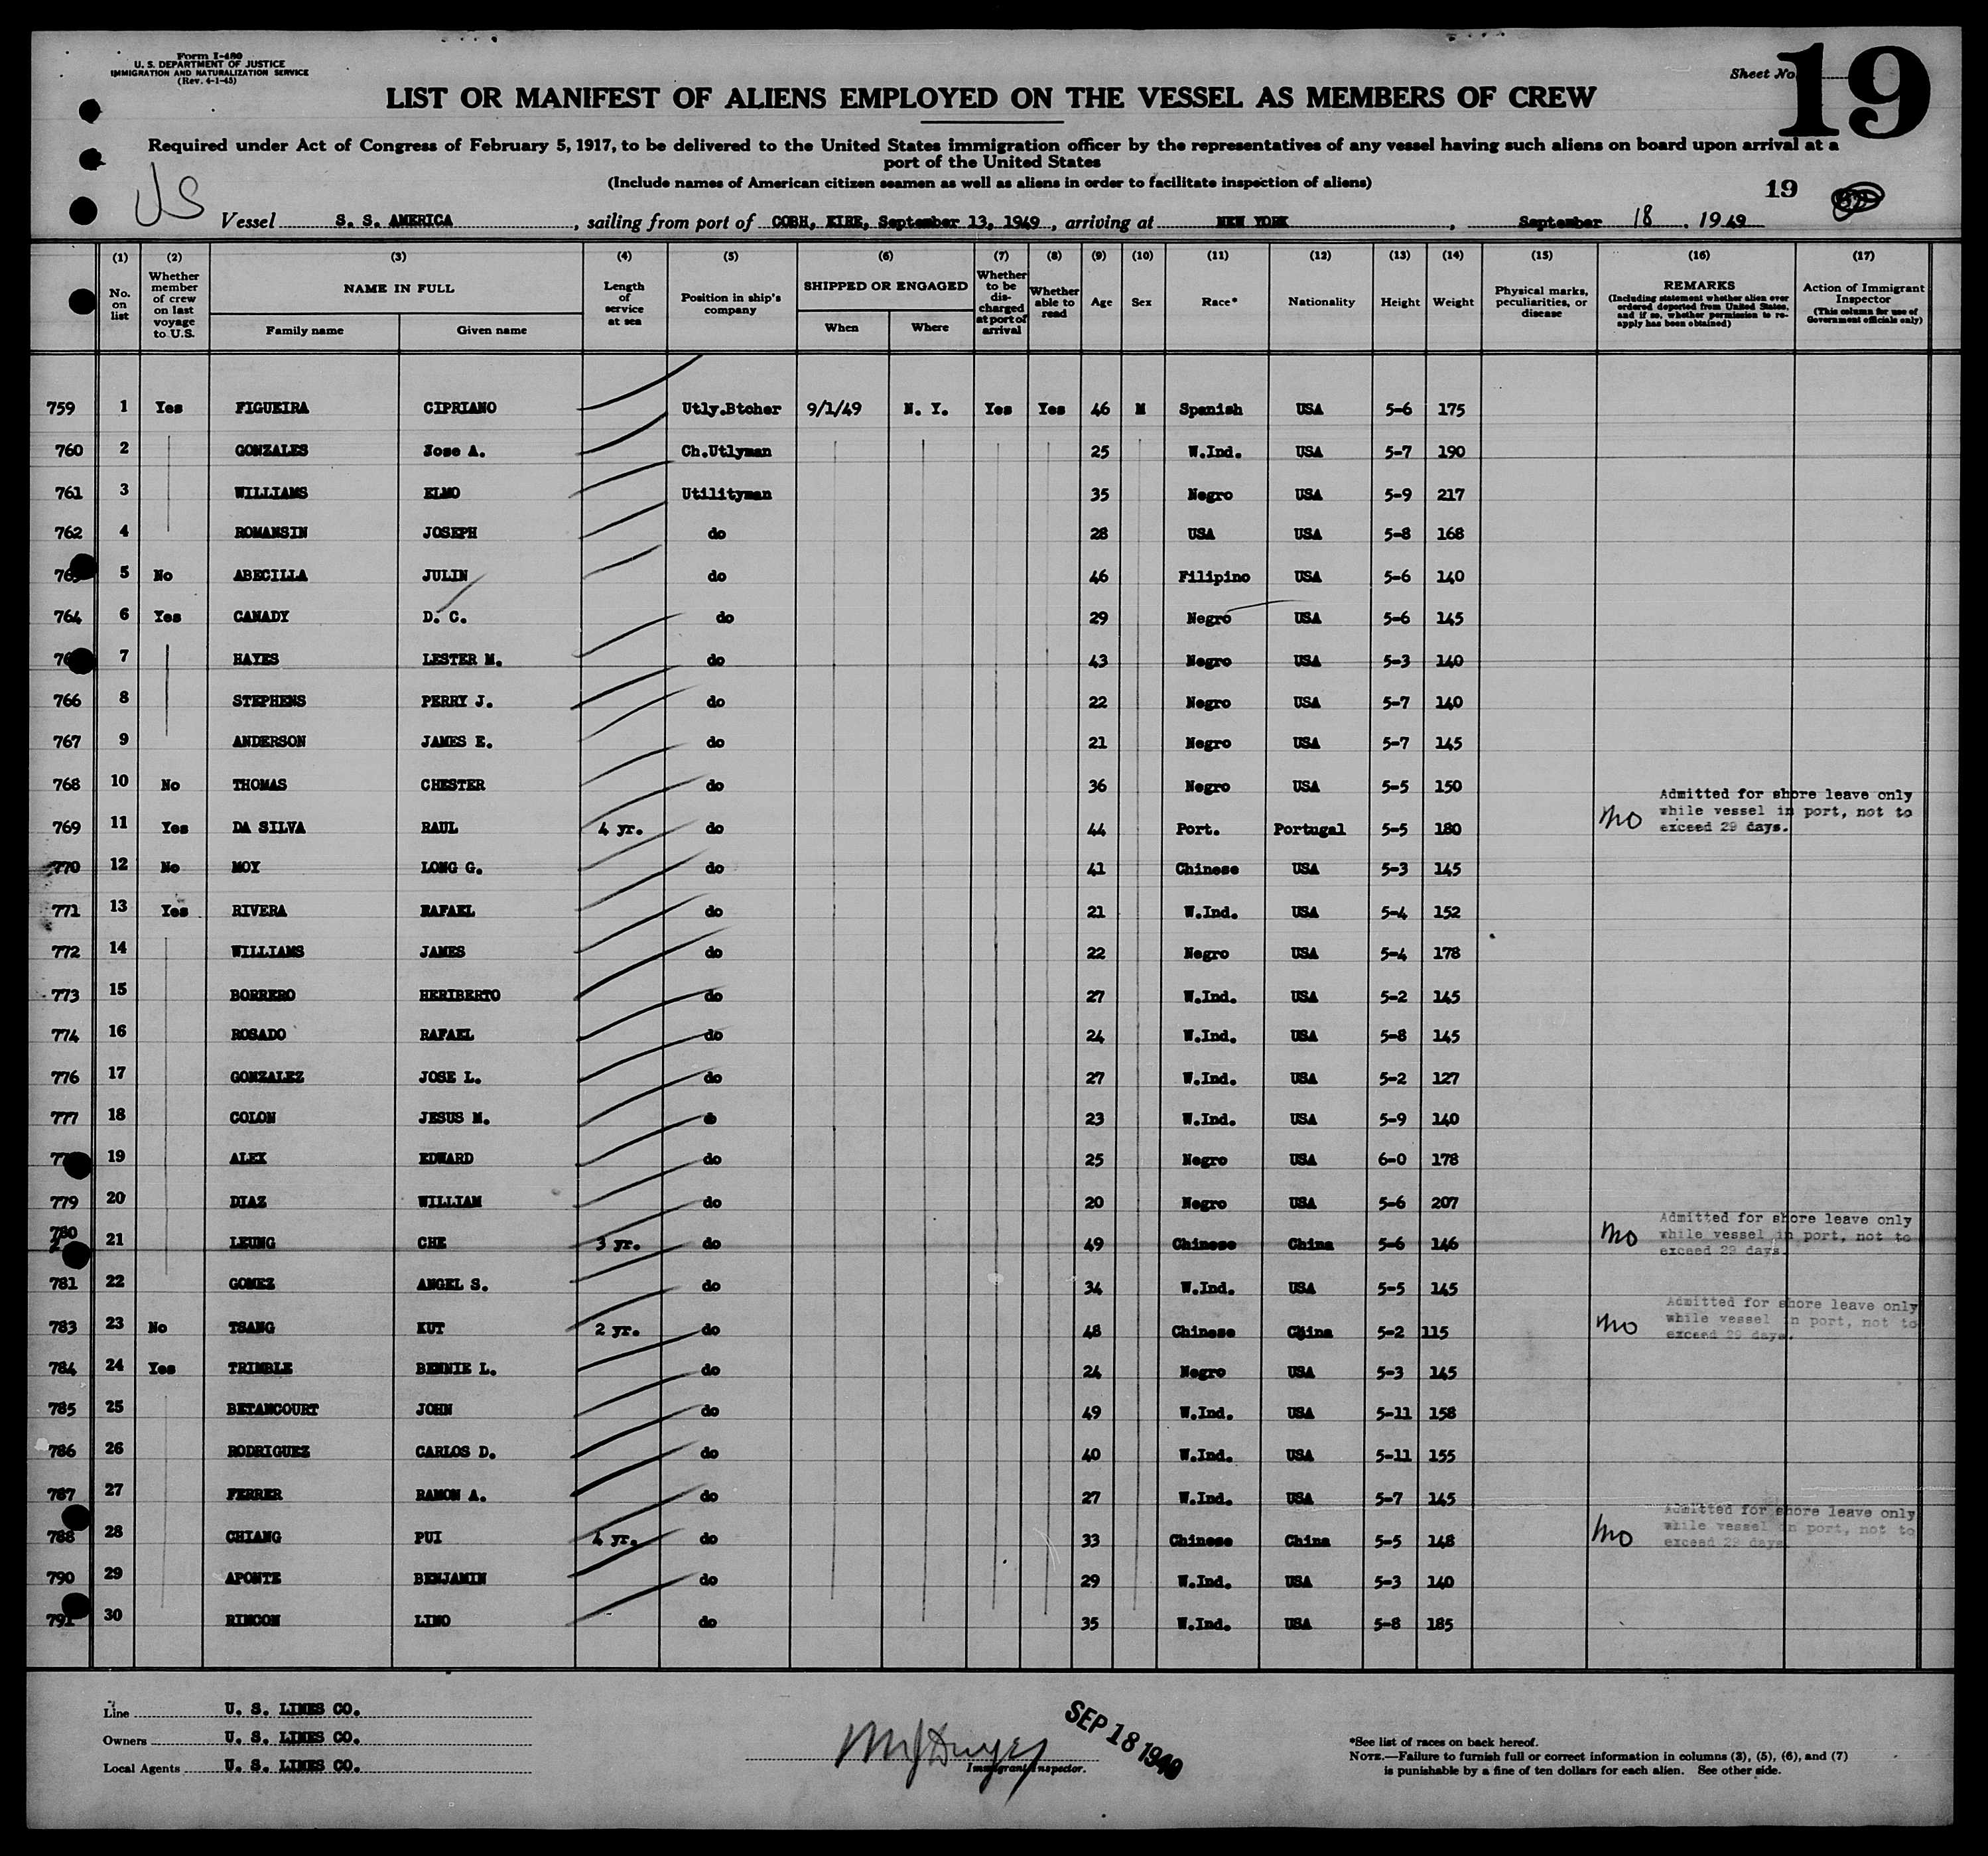 Form I-480
U. S. DEPARTMENT OF JUSTICE
IMMIGRATION AND NATURALIZATION SERVICE
(Rev. 4-1-45)
Sheet No. 19
LIST OR MANIFEST OF ALIENS EMPLOYED ON THE VESSEL AS MEMBERS OF CREW
Required under Act of Congress of February 5, 1917, to be delivered to the United States immigration officer by the representatives of any vessel having such aliens on board upon arrival at a
port of the United States
(Include names of American citizen seamen as well as aliens in order to facilitate inspection of aliens)
19
US
Vessel S. S. AMERICA, sailing from port of COBH, EIRE, September 13, 1949, arriving at NEW YORK, September 18, 1949
(1) No. on list (2) Whether member of crew on last voyage to U.S. (3) NAME IN FULL Family name Given name (4) Length of service at sea (5) Position in ship's company (6) SHIPPED OR ENGAGED When Where (7) Whether to be discharged at port of arrival (8) Whether able to read (9) Age (10) Sex (11) Race* (12) Nationality (13) Height (14) Weight (15) Physical marks, peculiarities, or disease (16) REMARKS (Including statement whether alien ever ordered deported from United States, and if so, whether permission to reapply has been obtained) (17) Action of Immigrant Inspector (This column for use of Government officials only)
759 1 Yes FIGUEIRA CIPRIANO Utly.Btcher 9/1/49 N. Y. Yes Yes 46 M Spanish USA 5-6 175
760 2 GONZALES Jose A. Ch.Utlyman 25 W.Ind. USA 5-7 190
761 3 WILLIAMS ELMO Utilityman 35 Negro USA 5-9 217
762 4 ROMANSIN JOSEPH do 28 USA USA 5-8 168
5 No ABECILLA JULIN do 46 Filipino USA 5-6 140
764 6 Yes CANADY D. C. do 29 Negro USA 5-6 145
7 HAYES LESTER M. do 43 Negro USA 5-3 140
766 8 STEPHENS PERRY J. do 22 Negro USA 5-7 140
767 9 ANDERSON JAMES E. do 21 Negro USA 5-7 145
768 10 No THOMAS CHESTER do 36 Negro USA 5-5 150
769 11 Yes DA SILVA RAUL 4 yr. do 44 Port. Portugal 5-5 180 mo Admitted for shore leave only while vessel in port, not to exceed 29 days.
770 12 No MOY LONG G. do 41 Chinese USA 5-3 145
771 13 Yes RIVERA RAFAEL do 21 W.Ind. USA 5-4 152
772 14 WILLIAMS JAMES do 22 Negro USA 5-4 178
773 15 BORRERO HERIBERTO do 27 W.Ind. USA 5-2 145
774 16 ROSADO RAFAEL do 24 W.Ind. USA 5-8 145
776 17 GONZALEZ JOSE L. do 27 W.Ind. USA 5-2 127
777 18 COLON JESUS M. 23 W.Ind. USA 5-9 140
19 ALEX EDWARD do 25 Negro USA 6-0 178
779 20 DIAZ WILLIAM do 20 Negro USA 5-6 207
780 21 LEUNG CHE 3 yr. do 49 Chinese China 5-6 146 mo Admitted for shore leave only while vessel in port, not to exceed 29 days.
781 22 GOMEZ ANGEL S. do 34 W.Ind. USA 5-5 145
783 23 No TSANG KUT 2 yr. do 48 Chinese China 5-2 115 mo Admitted for shore leave only while vessel in port, not to exceed 29 days.
784 24 Yes TRIMBLE BENNIE L. do 24 Negro USA 5-3 145
785 25 BETANCOURT JOHN do 49 W.Ind. USA 5-11 158
786 26 RODRIGUEZ CARLOS D. do 40 W.Ind. USA 5-11 155
787 27 FERRER RAMON A. do 27 W.Ind. USA 5-7 145
788 28 CHIANG PUI 4 yr. do 33 Chinese China 5-5 148 mo Admitted for shore leave only while vessel in port, not to exceed 29 days
790 29 APONTE BENJAMIN do 29 W.Ind. USA 5-3 140
791 30 RINCON LINO do 35 W.Ind. USA 5-8 185
Line U. S. LINES CO.
Owners U. S. LINES CO.
Local Agents U. S. LINES CO.
Immigrant Inspector.
SEP 18 1949
*See list of races on back hereof.
NOTE.—Failure to furnish full or correct information in columns (3), (5), (6), and (7)
is punishable by a fine of ten dollars for each alien. See other side.